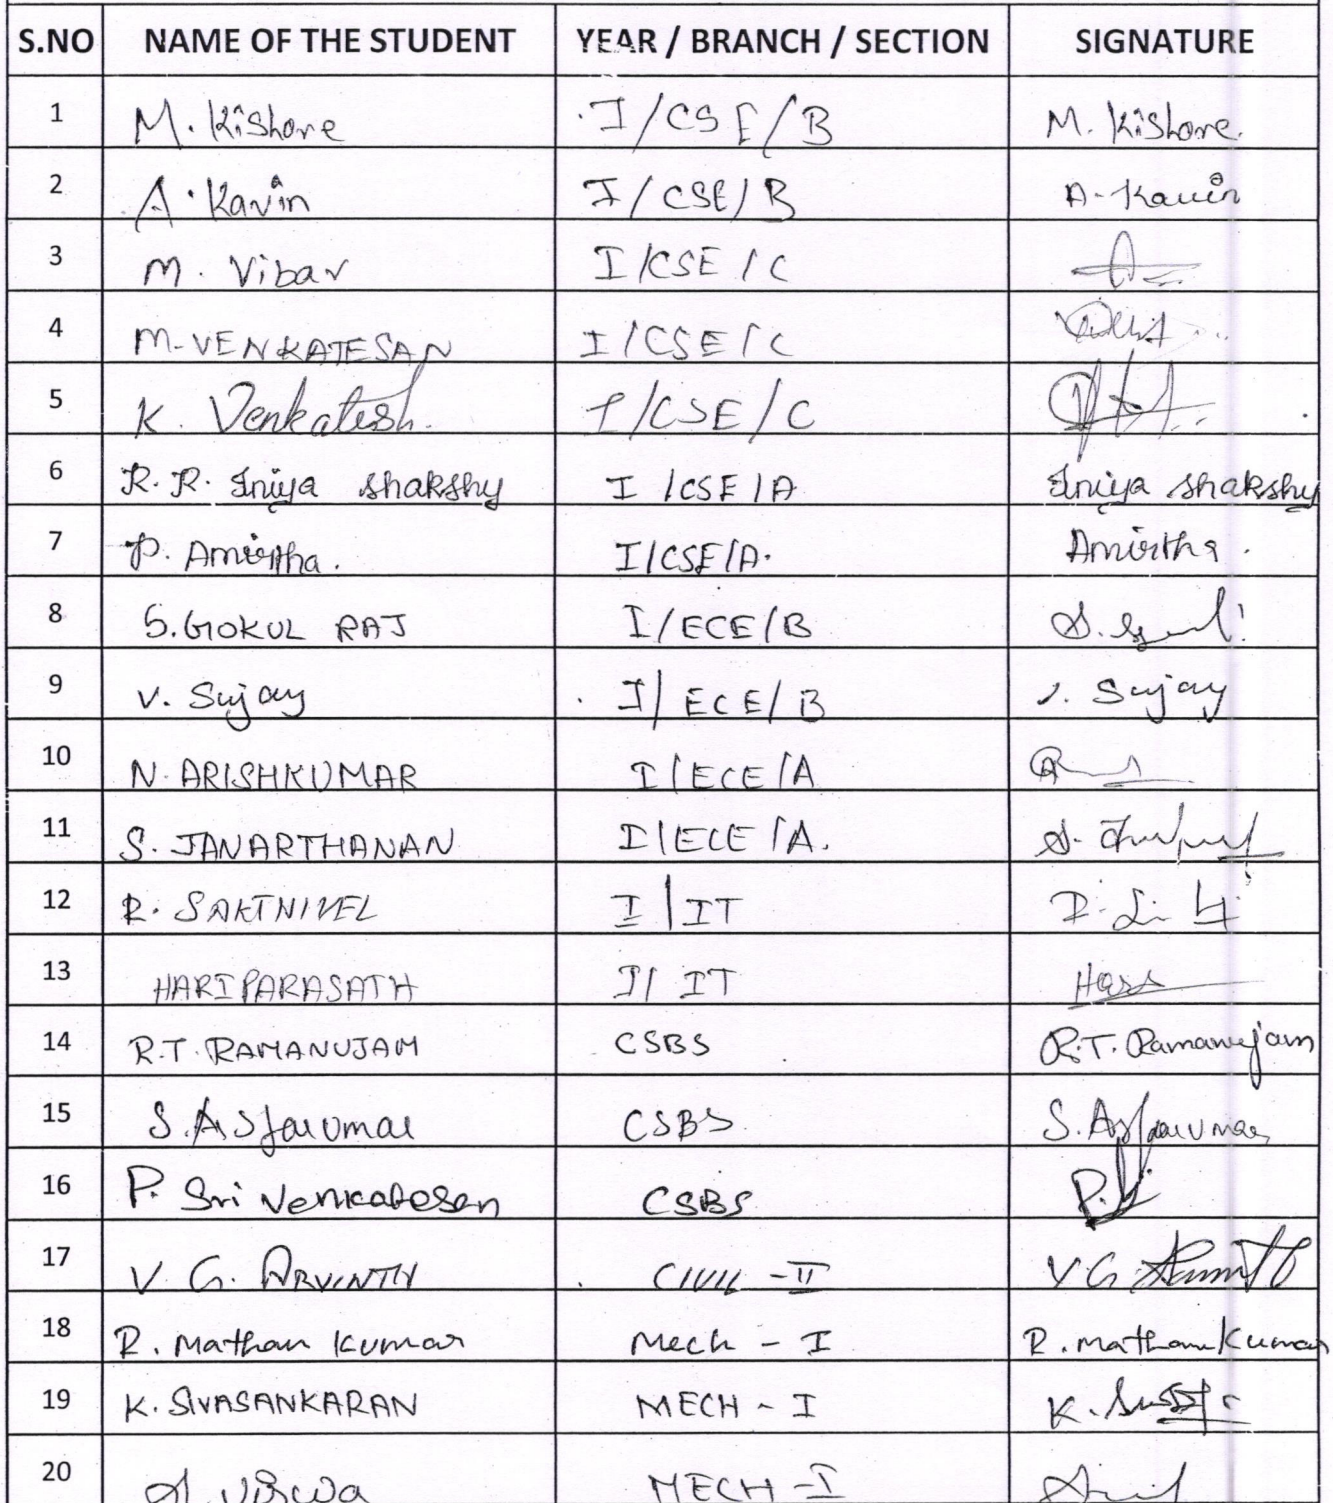 S.NO NAME OF THE STUDENT YEAR / BRANCH / SECTION SIGNATURE
1 M. Kishore I/CSE/B M. Kishore.
2 A. Kavin I/CSE/B A. Kavin
3 M. Vibav I/CSE/C
4 M. VENKATESAN I/CSE/C
5 K. Venkatesh. I/CSE/C
6 R. R. Iniya shakshy I/CSE/A Iniya shakshy
7 P. Amirtha. I/CSE/A. Amirtha.
8 S. GOKUL RAJ I/ECE/B
9 V. Sujay I/ECE/B V. Sujay
10 N. ARISHKUMAR I/ECE/A
11 S. JANARTHANAN I/ECE/A.
12 R. SAKTHIVEL I/IT
13 HARIPARASATH I/IT
14 R.T. RAMANUJAM CSBS R.T. Ramanujam
15 S. CSBS S.
16 P. Sri Venkatesan CSBS
17 V. G. ARVINTH CIVIL - II V G
18 R. Mathan Kumar Mech - I R. mathan Kumar
19 K. SIVASANKARAN MECH - I K.
20 Viswa MECH - I